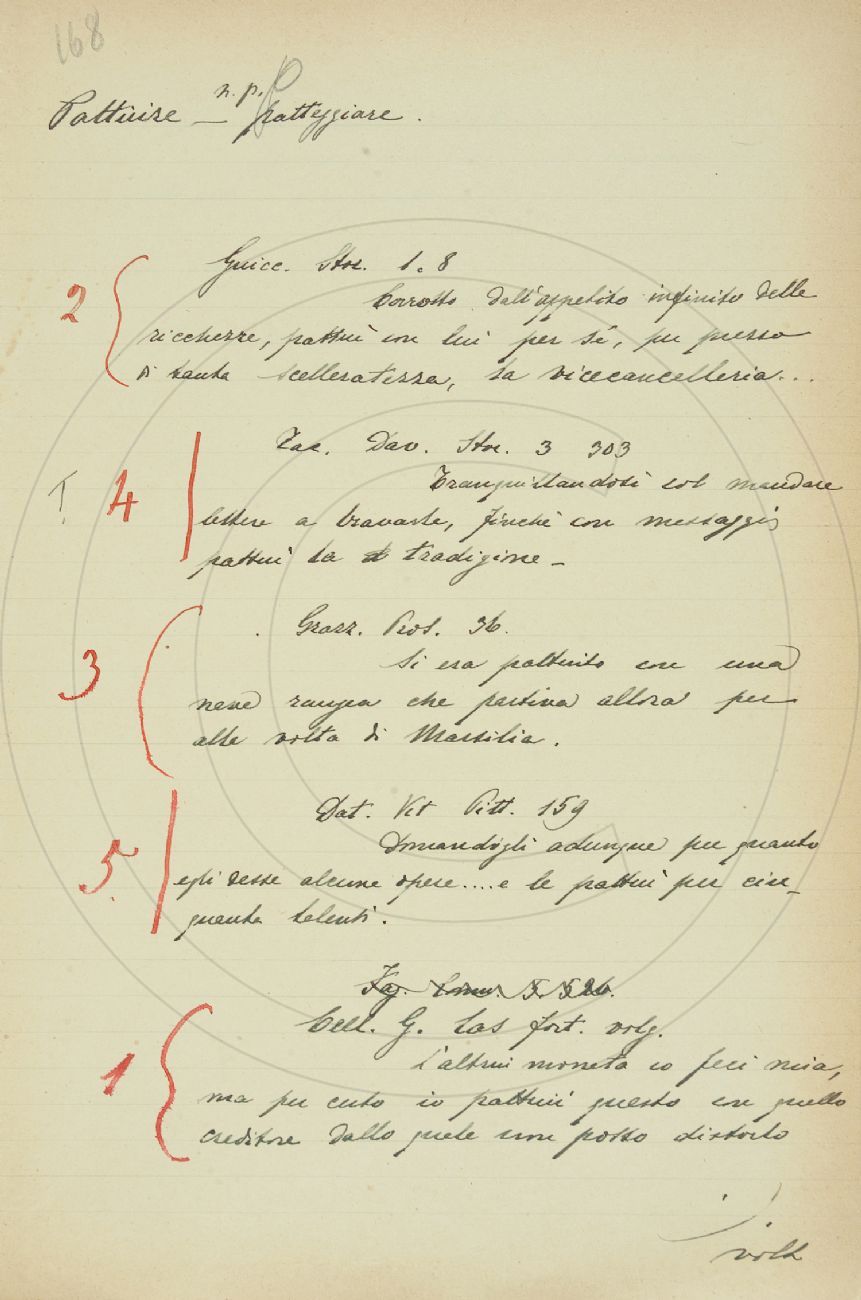 168
n. p.
Pattuire — patteggiare.
Guicc. Stor. 1. 8
Corrotto dall'appetito infinito delle
2
ricchezze, pattuì con lui per sé, per prezzo
di tanta scelleratezza, la vicecancelleria...
Tac. Dav. Stor. 3 303
Tranquillandosi col mandare
4
lettere a bravarle, finchè con messaggi
pattuì la tradigione –
Grazz. Pros. 36.
Si era pattuito con una
3
nave rangea che partiva allora per
alle volta di Marsilia.
Dat. Vit Pitt. 159
Domandògli adunque per quanto
5.
egli desse alcune opere....e le pattuì per cin-
quanta talenti.
Fag. Comm. 5. 526.
Cecc. G. Las fort. volg.
L'altrui moneta io feci mia,
1
ma per certo io pattuii questo con quello
creditore dallo quale non posso distorlo
volt